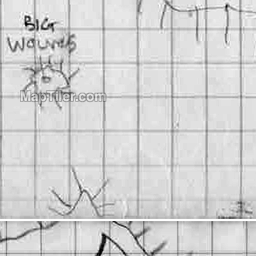 BIG
WOLVES
MapTiler.com